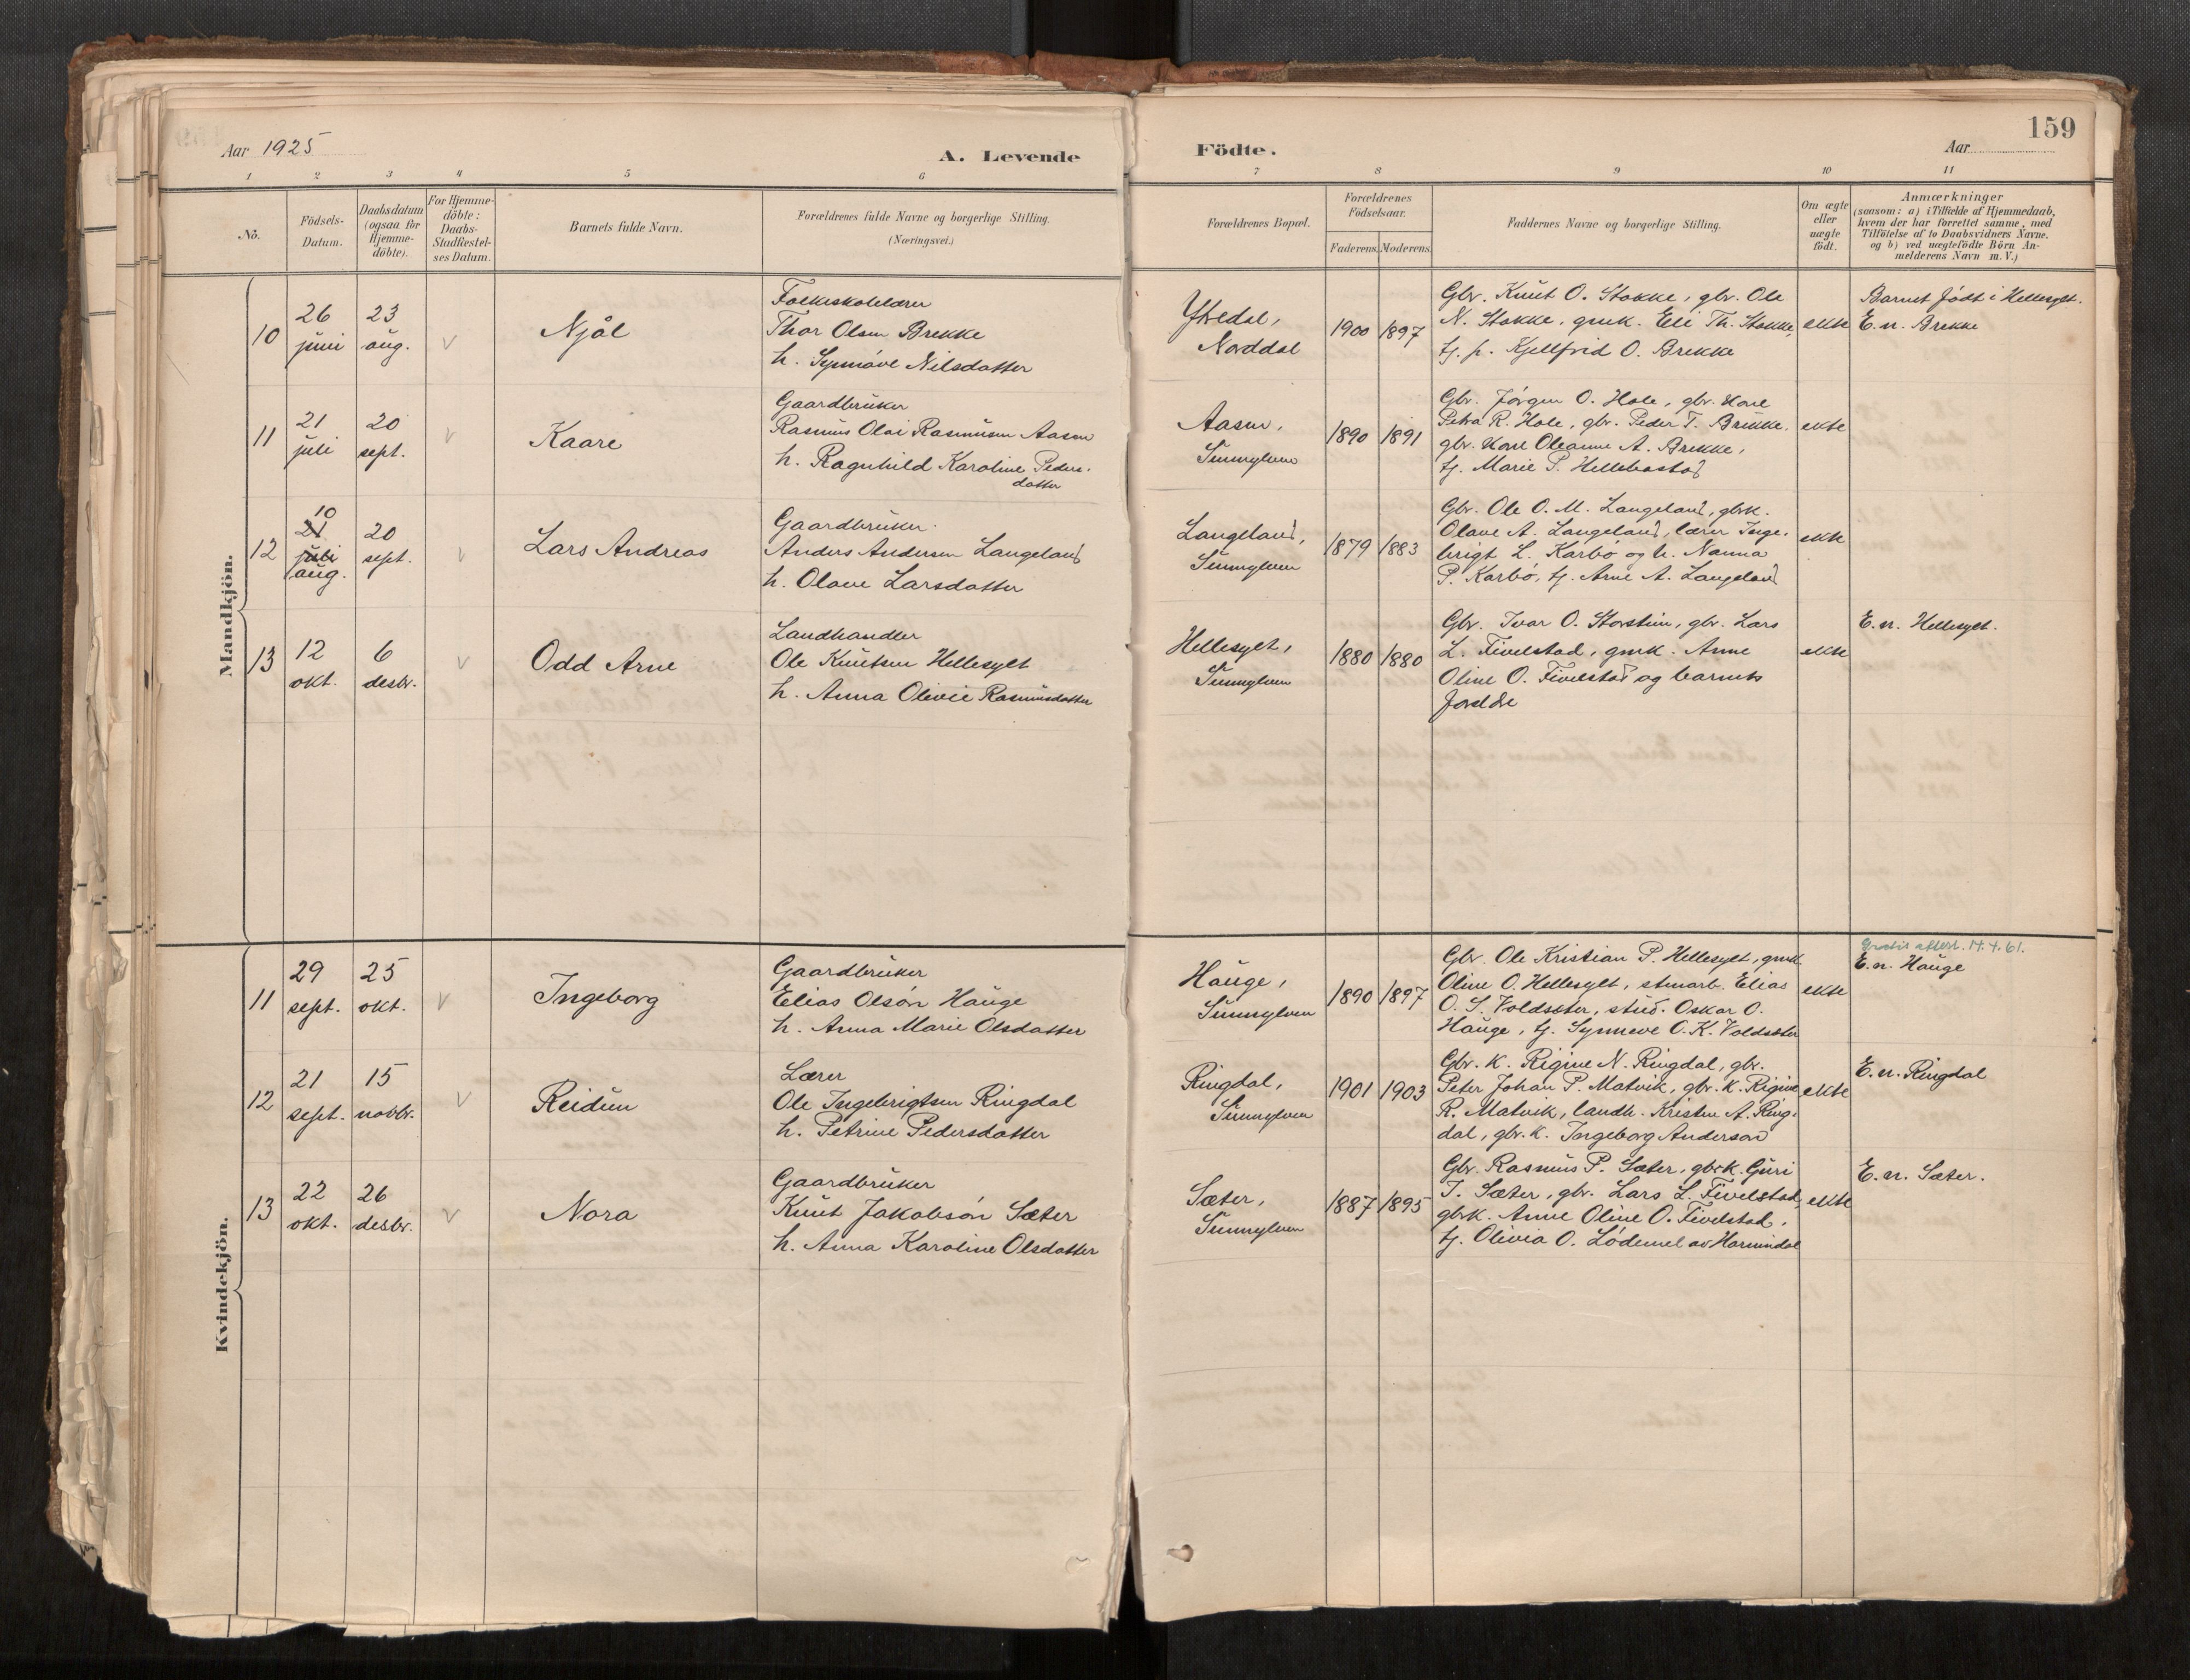 159
Aar 1925
A. Levende
Födte.
Aar
1 2 3 4 5 6
7 8 9 10 11
No.
Födsels-
Datum.
Daabsdatum
(ogsaa for
Hjemme-
döbte).
For Hjemme-
döbte:
Daabs-
Stadfæstel-
ses Datum.
Barnets fulde Navn.
Forældrenes fulde Navne og borgerlige Stilling.
(Næringsvei.)
Forældrenes Bopæl.
Forældrenes
Födselsaar.
Faderens.
Moderens.
Faddernes Navne og borgerlige Stilling.
Om ægte
eller
uægte
födt.
Anmærkninger
(saasom: a) i Tilfælde af Hjemmedaab,
hvem der har forrettet samme, med
Tilföielse af to Daabsvidners Navne.
og b) ved uægtefödte Börn An-
melderens Navn m. V.)
Mandkjön.
10
26
juni
23
aug.
v
Njål
Folkeskolelærer
Thor Olsen Brekke
h. Synnöve Nilsdatter
Ytredal,
Norddal
1900
1897
Gbr. Knut O. Stokke, gbr. Ole
N. Stokke, gmk. Eli Th. Stokke,
tj. p. Kjellfrid O. Brekke
ekte
Barnet födt i Hellesylt.
E.n. Brekke
11
21
juli
20
sept.
v
Kaare
Gaardbruker
Rasmus Olai Rasmusen Aasen
h. Ragnhild Karoline Peders-
datter
Aasen,
Sunnylven
1890
1891
Gbr. Jörgen O. Hole, gbr. kone
Petra R. Hole, gbr. Peder T. Brekke,
gbr. kone Oleanne A. Brekke,
tj. Marie P. Hellebostad
ekte
12
10
21
juli
aug.
20
sept.
v
Lars Andreas
Gaardbruker
Anders Andersen Langeland
h. Olave Larsdatter
Langeland,
Sunnylven
1879
1883
Gbr. Ole O. M. Langeland, gbrk.
Olave A. Langeland, lærer Inge-
brigt L. Karbö og h. Nanna
P. Karbö, tj. Arne A. Langeland
ekte
13
12
okt.
6
desbr.
v
Odd Arne
Landhandler
Ole Knutsen Hellesylt
h. Anna Olivie Rasmusdatter
Hellesylt,
Sunnylven
1880
1880
Gbr. Ivar O. Storstein, gbr. Lars
L. Fivelstad, gmk. Anne
Oline O. Fivelstad og barnets
foreldre
ekte
E.n. Hellesylt.
Kvindekjön.
11
29
sept.
25
okt.
v
Ingeborg
Gaardbruker
Elias Olsön Hauge
h. Anna Marie Olsdatter
Hauge,
Sunnylven
1890
1897
Gbr. Ole Kristian P. Hellesylt, gmk.
Oline O. Hellesylt, stenarb. Elias
O. S. Voldsæter, stud. Oskar O.
Hauge, tj. Synneve O. K. Voldsæter
ekte
Gratis attest. 14.4.61.
E.n. Hauge
12
21
sept.
15
novbr.
v
Reidun
Lærer
Ole Ingebrigtsen Ringdal
h. Petrine Pedersdatter
Ringdal,
Sunnylven
1901
1903
Gbr. k. Rigine N. Ringdal, gbr.
Peter Johan P. Matvik, gbr. k. Rigine
R. Matvik, landh. Kristen A. Ring-
dal, gbr. k. Ingeborg Anderson
ekte
E.n. Ringdal
13
22
okt.
26
desbr.
v
Nora
Gaardbruker
Knut Jakobsön Sæter
h. Anna Karoline Olsdatter
Sæter,
Sunnylven
1887
1895
Gbr. Rasmus P. Sæter, gbrk. Guri
J. Sæter, gbr. Lars L. Fivelstad,
gbrk. Anne Oline O. Fivelstad.
tj. Olivia O. Lödemel av Hornindal
ekte
E.n. Sæter.